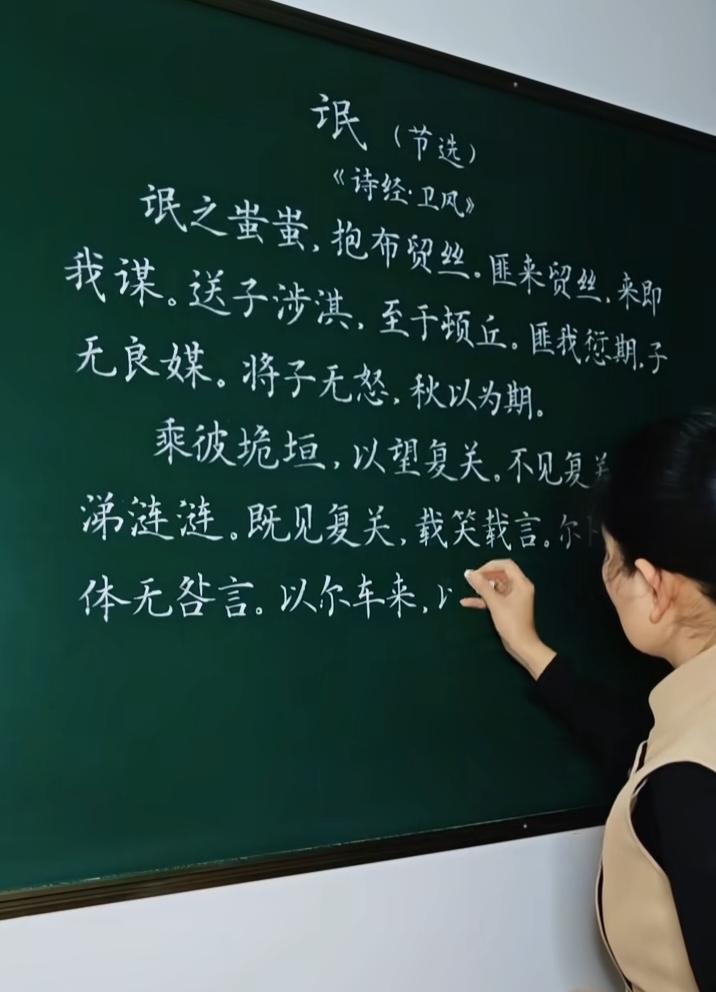 氓（节选）
《诗经·卫风》
氓之蚩蚩，抱布贸丝。匪来贸丝，来即
我谋。送子涉淇，至于顿丘。匪我愆期，子
无良媒。将子无怒，秋以为期。
乘彼垝垣，以望复关。不见复关
涕涟涟。既见复关，载笑载言。尔
体无咎言。以尔车来，